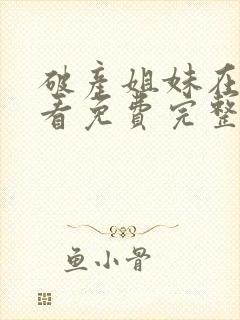 破产姐妹在
看免费完整
鱼小骨